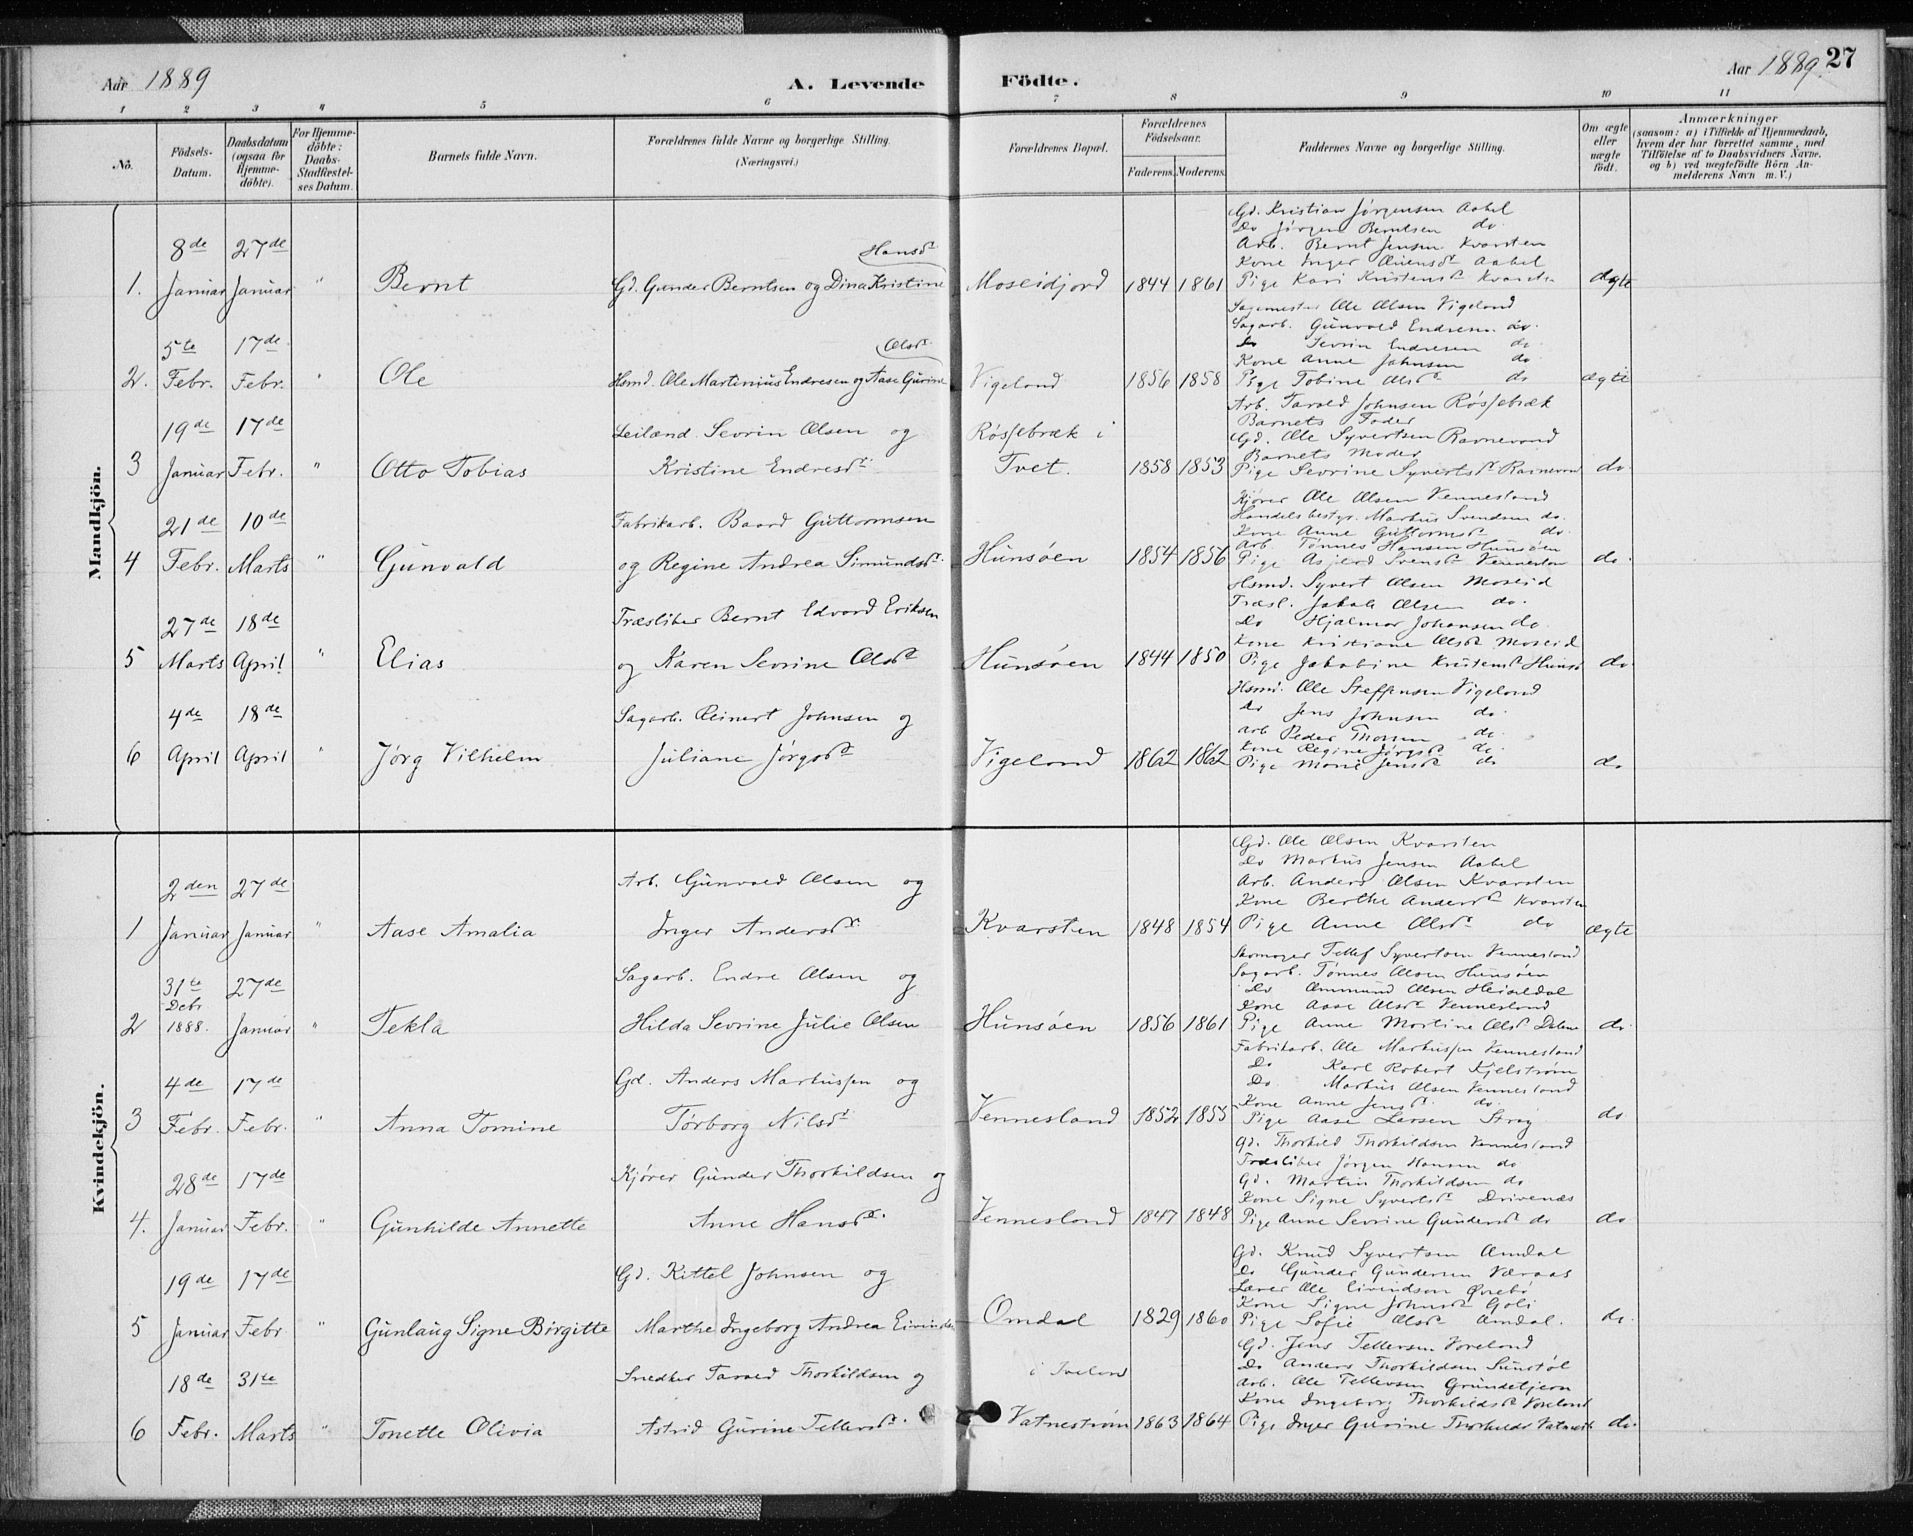 Aar 1889
A. Levende Födte.
Aar 1889.
27
1 2 3 4 5 6 7 8 9 10 11
No.
Födsels-Datum.
Daabsdatum (ogsaa for Hjemme-döbte).
For Hjemme-döbte: Daabs-Stadfæstel-ses Datum.
Barnets fulde Navn.
Forældrenes fulde Navne og borgerlige Stilling. (Næringsvei.)
Forældrenes Bopæl.
Forældrenes Födselsaar.
Faderens. Moderens.
Faddernes Navne og borgerlige Stilling.
Om ægte eller uægte födt.
Anmærkninger
(saasom: a) i Tilfælde af Hjemmedaab,
hvem der har forrettet samme, med
Tilföielse af to Daabsvidners Navne,
og b) ved uægtefödte Börn An-
melderens Navn m. V.)
Mandkjön.
1. 8de Januar 27de Januar " Bernt
Gd. Gunder Berntsen og Dina Kristine Hansdt
Moseidjord 1844 1861
Gd. Kristian Jörgensen Aabel
Do Jörgen Berntsen do
Arb. Bernt Jensen Kvarsten
Kone Inger Aabel
Pige Kari Kristensdt
ægte
2. 5te Febr. 17de Febr. " Ole
Hsmd. Ole Martinius Endresen og Aase Gurine Olsdt
Vigeland 1856 1858
Sagmester Ole Olsen Vigeland
Sagarb. Gunvald Endresen do.
Do Sevrin Endresen do.
Kone Anne Johnsen do
Pige Tobine Olsdt do
ægte
3 19de Januar 17de Febr. " Otto Tobias
Leilænd. Sevrin Olsen og
Kristine Endresdt
Røssebræk i
Tvet. 1858 1853
Arb. Tarald Johnsen Røssebræk
Barnets Fader
Gd. Ole Syvertsen Ravnevand
Barnets Moder
Pige Sevrine Syvertsdt
do
4 21de Febr. 10de Marts " Gunvald
Fabrikarb. Baard Guttormsen
og Regine Andrea Simundsdt.
Hunsøen 1854 1856
Kjører Ole Olsen Vennesland
Handelsbestyr. Markus Svendsen do.
Kone Anne Guttormsdt do.
Arb. Tønnes Hansen Hunsøen
Pige Asjerd Svensdt Vennesland
do.
5 27de Marts 18de April " Elias
Træsliber Bernt Edvard Eriksen
og Karen Sevrine Olsdt
Hunsøen 1844 1850
Hsmd. Syvert Olsen Moseid
Træsl. Jakob Olsen do.
Do Hjalmar Johansen do.
Kone Kristiane Olsdt Moseid
Pige Jakobine Kristensdt Hunsø
do.
6 4de April 18de April " Jørg Vilhelm
Sagarb. Reinert Johnsen og
Juliane Jörgsdt
Vigeland 1862 1862
Hsmd. Ole Steffensen Vigeland
Do Jens Johnsen do.
Arb Peder do.
Kone Regine Jörgsdt do.
Pige Marie Jensdt do
do
Kvindekjön.
1 2den Januar 27de Januar " Aase Amalia
Arb. Gunvald Olsen og
Inger Andersdt
Kvarsten 1848 1854
Gd. Ole Olsen Kvarsten
Do Markus Jensen Aabel
Arb. Anders Olsen Kvarsten
Kone Berthe Andersdt Kvarsten
Pige Anne Olsdt do
ægte
2 31te Debr 1888. 27de Januar " Tekla
Sagarb. Endre Olsen og
Hilda Sevrine Julie Olsen
Hunsøen 1856 1861
Skomager Tellef Syvertsen Vennesland
Sagarb. Tønnes Olsen Hunsøen
Do Ommund Olsen Heiseldal
Kone Aase Olsdt Vennesland
Pige Anne Martine Olsdt
do.
3 4de Febr. 17de Febr. " Anna Tomine
Gd. Anders Markussen og
Tørborg Nilsdt
Vennesland 1852 1855
Fabrikarb. Ole Markussen Vennesland
Do Karl Robert Kjelstrøm
Do Markus Olsen Vennesland
Kone Anne Jensdt do.
Pige Aase Larsen Strai
do
4. 28de Januar 17de Febr. " Gunhilde Annette
Kjører Gunder Thorkildsen og
Anne Hansdt.
Vennesland 1847 1848
Gd. Thorkild Thorkildsen Vennesland
Træsliber Jørgen Hansen do
Gd. Martin Thorkildsen do
Kone Signe Syvertsdt Drivenæs
Pige Anne Sevrine Gundersdt do
do
5 19de Januar 17de Febr " Gunlaug Signe Birgitte
Gd. Kittel Johnsen og
Marthe Ingeborg Andrea
Omdal 1829 1860
Gd. Knud Syvertsen Omdal
Do Gunder Gundersen Væraas
Lærer Ole Eivindsen Øvebø
Kone Signe Johnsdt Goli
Pige Sofie Olsdt Omdal.
do.
6 18de Febr. 31te Marts " Tonette Olivia
Snedker Tarald Thorkildsen og
Astrid Gurine Tellefsdt.
i Iveland
Vatnestrøm 1863 1864
Gd. Jens Tellefsen Voreland
Do Anders Thorkildsen
Arb. Ole Tellefsen Grundetjern
Kone Ingeborg Thorkildsdt Voreland
Pige Inger Gurine Thorkildsdt
do.